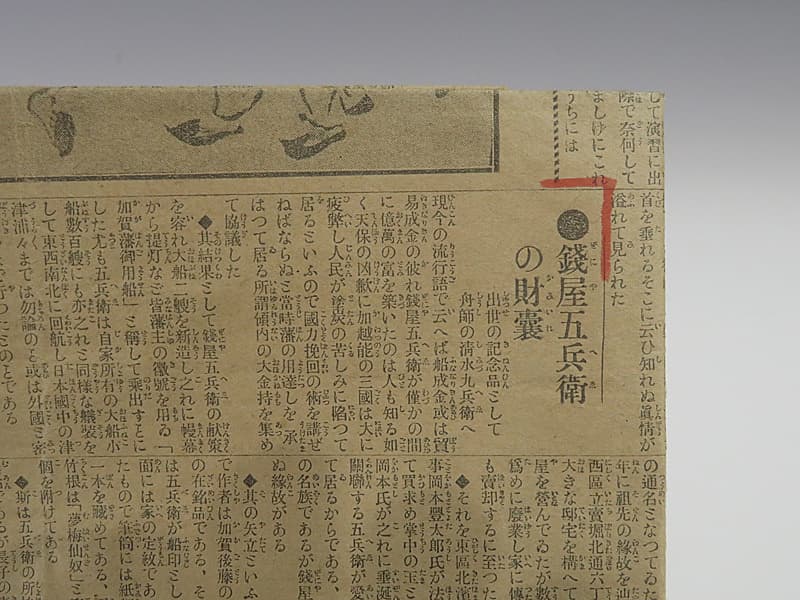 して演習に出
際で奈何して
ましけにこれ
うちには
首を垂れるそこに云ひ知れぬ眞情が
溢れて見られた
錢屋五兵衛
の財囊
出世の記念品として
舟師の淸水九兵衛へ
現今の流行語で云へば船成金或は貿
易成金の彼れ錢屋五兵衛が僅かの間
に億萬の富を築いたのは人も知る如
く天保の凶歉に加越能の三國は大に
疲弊し人民が塗炭の苦しみに陷つて
居るといふので國力挽回の術を講ぜ
ねばならぬと當時藩の用達しを承
はつて居る所謂領內の大金持を集め
て協議した
◆其結果として錢屋五兵衛の献策
を容れ大船二艘を新造し之れに幔幕
から提灯など皆藩主の徽號を用る「
加賀藩御用船」と稱して乘出すとに
した尤も五兵衛は自家所有の大船小
船數百艘にも亦之れと同樣な艤裝を
して東西南北に回航し日本國中の津
津浦々までは勿論のと或は外國と密
行つたとのとである
の通名となつてゐた
年に祖先の緣故を辿
西區立賣堀北通六丁
大きな邸宅を構へて
屋を營んでゐたが數
爲めに廢業し家に傳
も賣却するに至つた
◆それを東區北濱
事岡本豐太郎氏が法
て買求め掌中の玉と
岡本氏が之れに垂涎
關聯する五兵衛が愛
て居るからである、
の名族であるが錢屋
ぬ緣故がある
◆其の矢立といふ
で作者は加賀後藤の
の在銘品である、そ
は五兵衛が船印とし
面には家の定紋であ
たもので筆筒には紙
一本を藏めてある、
竹根は「夢梅仙奴」と
個を附けてある
◆斯は五兵衛の所持